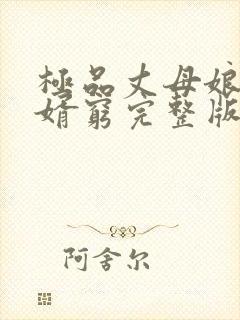 極品丈母娘
婿窮完整版
阿舍尔